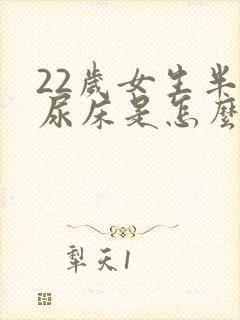 22歲女生半
尿床是怎麼
犁天1